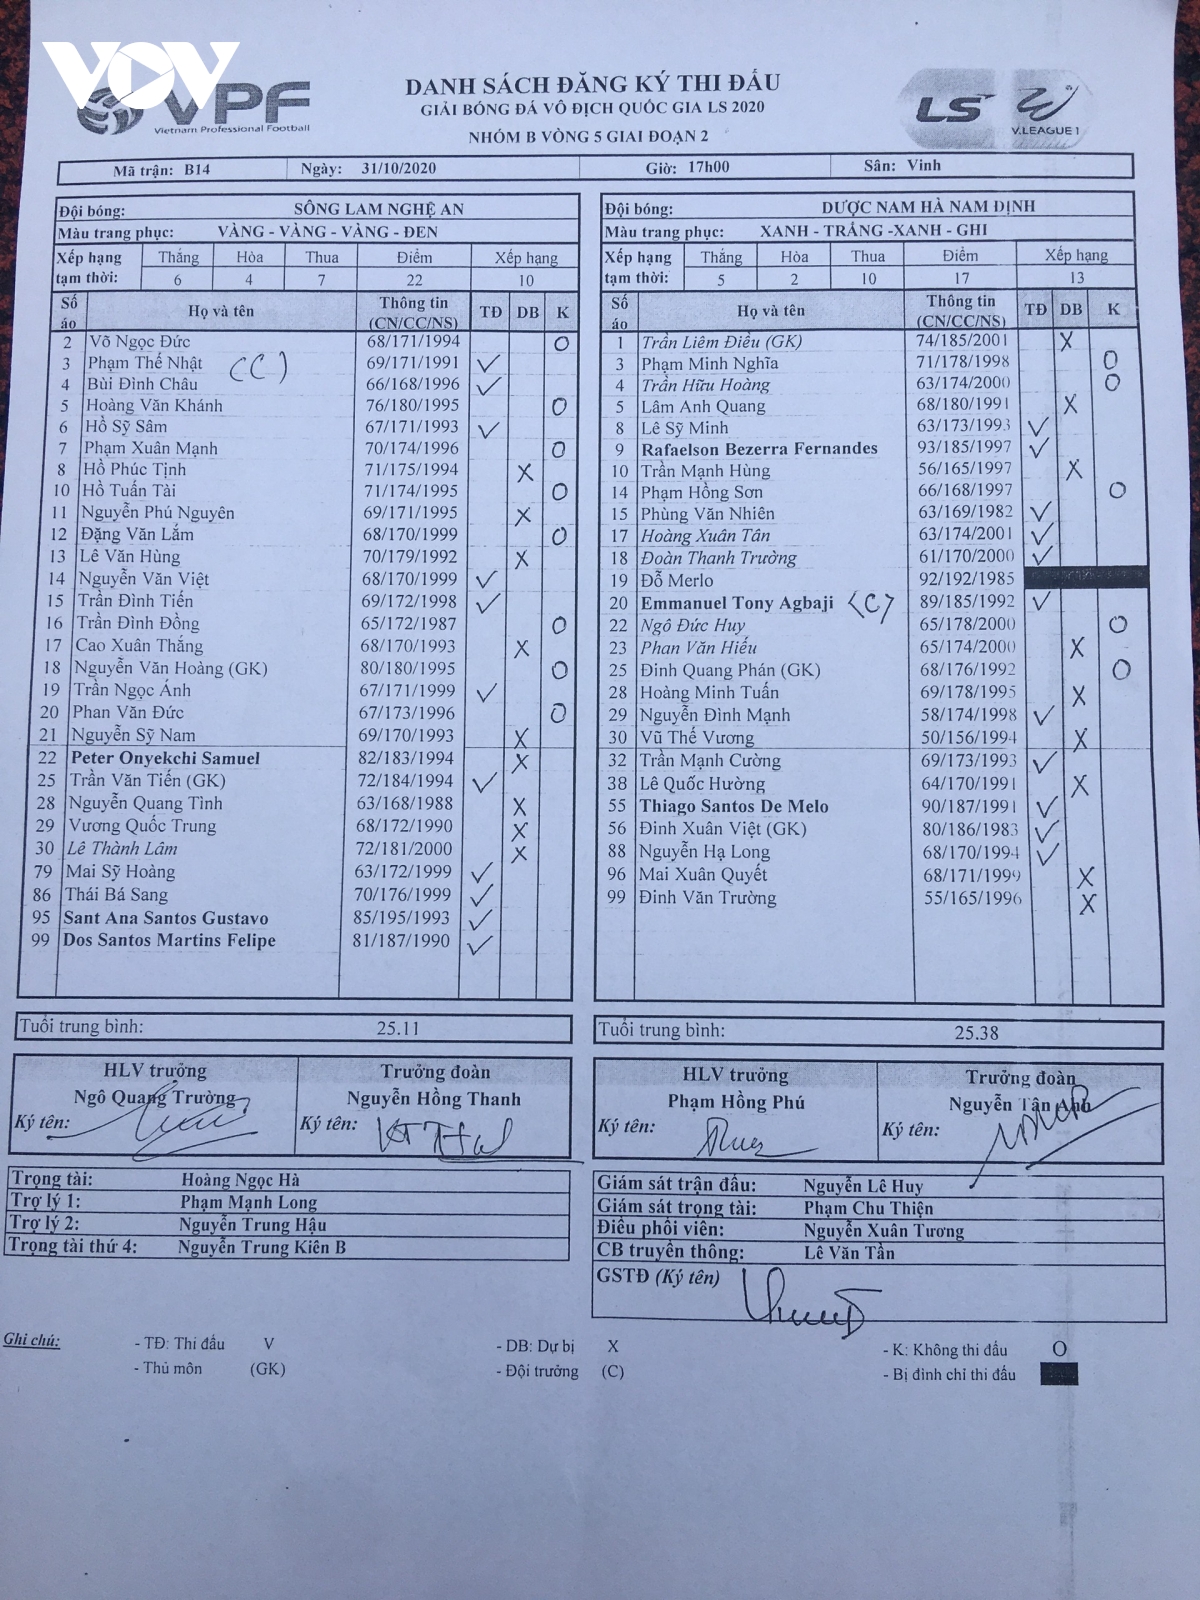 VOV
VPF
Vietnam Professional Football
DANH SÁCH ĐĂNG KÝ THI ĐẤU
GIẢI BÓNG ĐÁ VÔ ĐỊCH QUỐC GIA LS 2020
NHÓM B VÒNG 5 GIAI ĐOẠN 2
LS V.LEAGUE 1
Mã trận: B14 Ngày: 31/10/2020 Giờ: 17h00 Sân: Vinh
Đội bóng: SÔNG LAM NGHỆ AN
Màu trang phục: VÀNG - VÀNG - VÀNG - ĐEN
Xếp hạng Thắng Hòa Thua Điểm Xếp hạng
tạm thời: 6 4 7 22 10
Số áo Họ và tên Thông tin (CN/CC/NS) TĐ DB K
2 Võ Ngọc Đức 68/171/1994 O
3 Phạm Thế Nhật (C) 69/171/1991 ✓
4 Bùi Đình Châu 66/168/1996 ✓
5 Hoàng Văn Khánh 76/180/1995 O
6 Hồ Sỹ Sâm 67/171/1993 ✓
7 Phạm Xuân Mạnh 70/174/1996 O
8 Hồ Phúc Tịnh 71/175/1994 X
10 Hồ Tuấn Tài 71/174/1995 O
11 Nguyễn Phú Nguyên 69/171/1995 X
12 Đặng Văn Lắm 68/170/1999 O
13 Lê Văn Hùng 70/179/1992 X
14 Nguyễn Văn Việt 68/170/1999 ✓
15 Trần Đình Tiến 69/172/1998 ✓
16 Trần Đình Đồng 65/172/1987 O
17 Cao Xuân Thắng 68/170/1993 X
18 Nguyễn Văn Hoàng (GK) 80/180/1995 O
19 Trần Ngọc Ánh 67/171/1999 ✓
20 Phan Văn Đức 67/173/1996 O
21 Nguyễn Sỹ Nam 69/170/1993 X
22 Peter Onyekchi Samuel 82/183/1994 X
25 Trần Văn Tiến (GK) 72/184/1994 ✓
28 Nguyễn Quang Tình 63/168/1988 X
29 Vương Quốc Trung 68/172/1990 X
30 Lê Thành Lâm 72/181/2000 X
79 Mai Sỹ Hoàng 63/172/1999 ✓
86 Thái Bá Sang 70/176/1999 ✓
95 Sant Ana Santos Gustavo 85/195/1993 ✓
99 Dos Santos Martins Felipe 81/187/1990 ✓
Tuổi trung bình: 25.11
HLV trưởng Trưởng đoàn
Ngô Quang Trường Nguyễn Hồng Thanh
Ký tên: Ký tên:
Trọng tài: Hoàng Ngọc Hà
Trợ lý 1: Phạm Mạnh Long
Trợ lý 2: Nguyễn Trung Hậu
Trọng tài thứ 4: Nguyễn Trung Kiên B
Đội bóng: DƯỢC NAM HÀ NAM ĐỊNH
Màu trang phục: XANH - TRẮNG -XANH - GHI
Xếp hạng Thắng Hòa Thua Điểm Xếp hạng
tạm thời: 5 2 10 17 13
Số áo Họ và tên Thông tin (CN/CC/NS) TĐ DB K
1 Trần Liêm Điều (GK) 74/185/2001 X
3 Phạm Minh Nghĩa 71/178/1998 O
4 Trần Hữu Hoàng 63/174/2000 O
5 Lâm Anh Quang 68/180/1991 X
8 Lê Sỹ Minh 63/173/1993 ✓
9 Rafaelson Bezerra Fernandes 93/185/1997 ✓
10 Trần Mạnh Hùng 56/165/1997 X
14 Phạm Hồng Sơn 66/168/1997 O
15 Phùng Văn Nhiên 63/169/1982 ✓
17 Hoàng Xuân Tân 63/174/2001 ✓
18 Đoàn Thanh Trường 61/170/2000 ✓
19 Đỗ Merlo 92/192/1985
20 Emmanuel Tony Agbaji (C) 89/185/1992 ✓
22 Ngô Đức Huy 65/178/2000 O
23 Phan Văn Hiếu 65/174/2000 X
25 Đinh Quang Phán (GK) 68/176/1992 O
28 Hoàng Minh Tuấn 69/178/1995 X
29 Nguyễn Đình Mạnh 58/174/1998 ✓
30 Vũ Thế Vương 50/156/1994 X
32 Trần Mạnh Cường 69/173/1993 ✓
38 Lê Quốc Hường 64/170/1991 X
55 Thiago Santos De Melo 90/187/1991 ✓
56 Đinh Xuân Việt (GK) 80/186/1983 ✓
88 Nguyễn Hạ Long 68/170/1994 ✓
96 Mai Xuân Quyết 68/171/1999 X
99 Đinh Văn Trường 55/165/1996 X
Tuổi trung bình: 25.38
HLV trưởng Trưởng đoàn
Phạm Hồng Phú Nguyễn Tân Anh
Ký tên: Ký tên:
Giám sát trận đấu: Nguyễn Lê Huy
Giám sát trọng tài: Phạm Chu Thiện
Điều phối viên: Nguyễn Xuân Tương
CB truyền thông: Lê Văn Tần
GSTĐ (Ký tên)
Ghi chú: - TĐ: Thi đấu V - DB: Dự bị X - K: Không thi đấu O
- Thủ môn (GK) - Đội trưởng (C) - Bị đình chỉ thi đấu